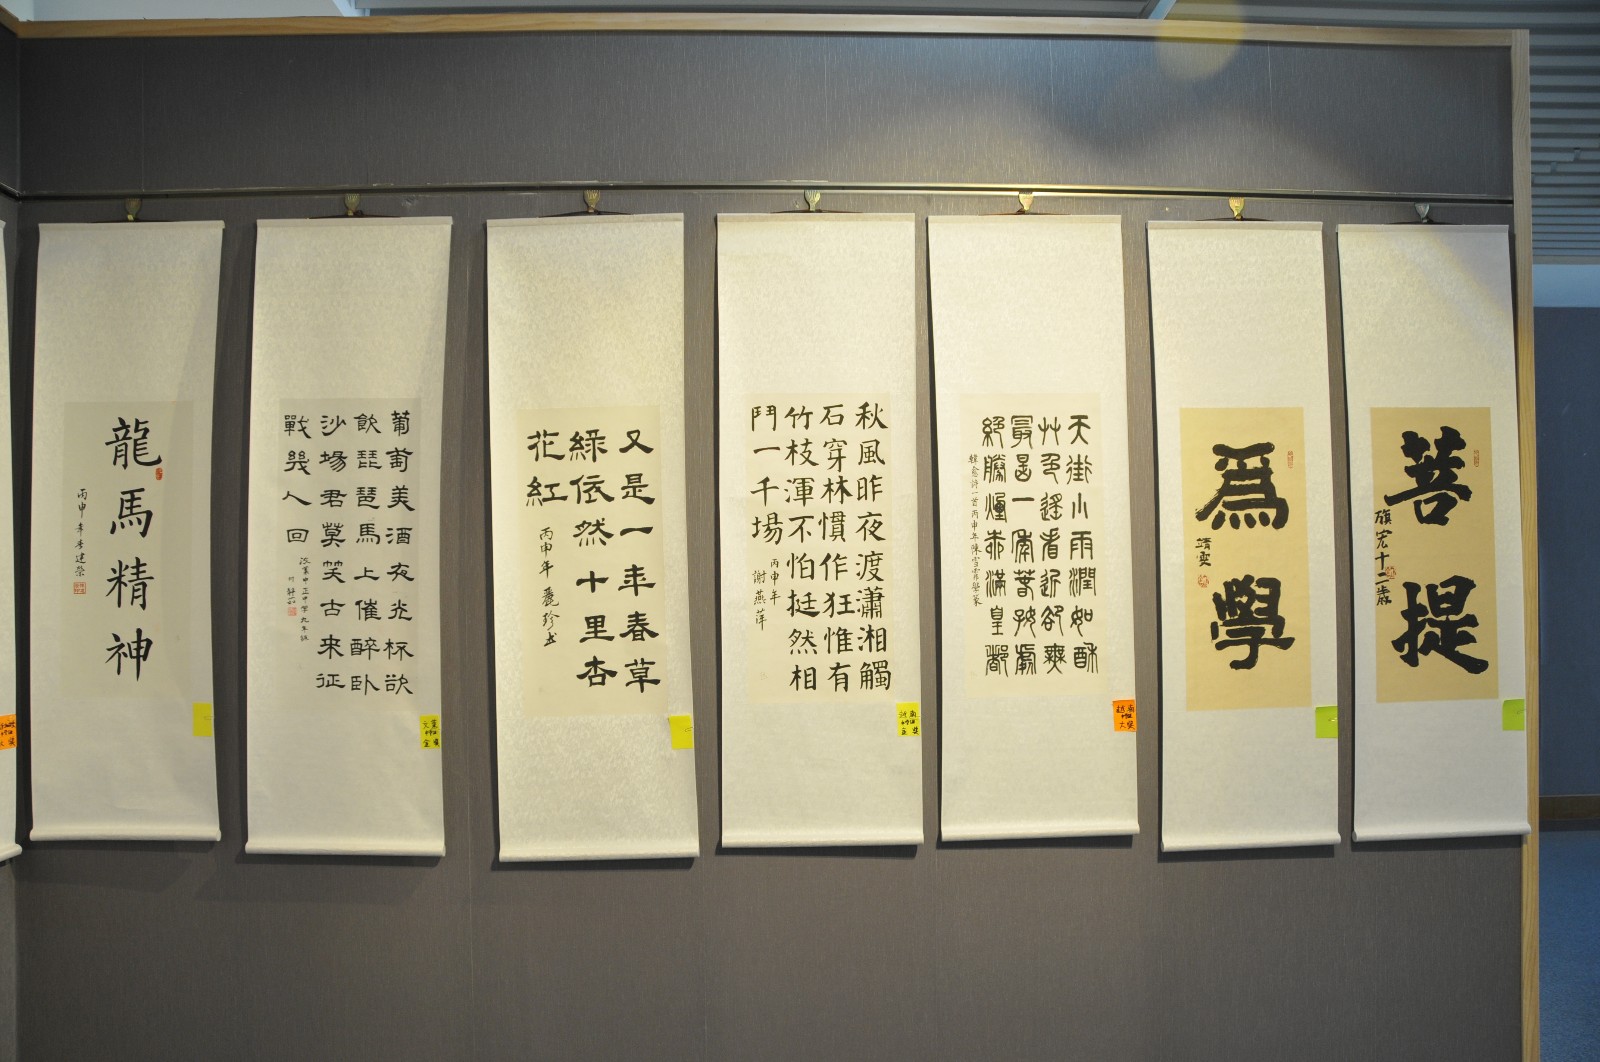 龍馬精神
丙申年
葡萄美酒夜光杯欲
飲琵琶馬上催醉臥
沙場君莫笑古來征
戰幾人回
中正中學九年級
又是一年春草
綠依然十里杏
花紅
丙申年麗珍書
秋風昨夜渡瀟湘觸
石穿林慣作狂惟有
竹枝渾不怕挺然相
鬥一千場
丙申年
謝燕萍
天街小雨潤如酥
艸色遙看近卻無
最是一年春好處
絕勝煙柳滿皇都
韓愈詩一首丙申年陳雪霏學篆
爲學
靖雯
菩提
旗宏十二歲